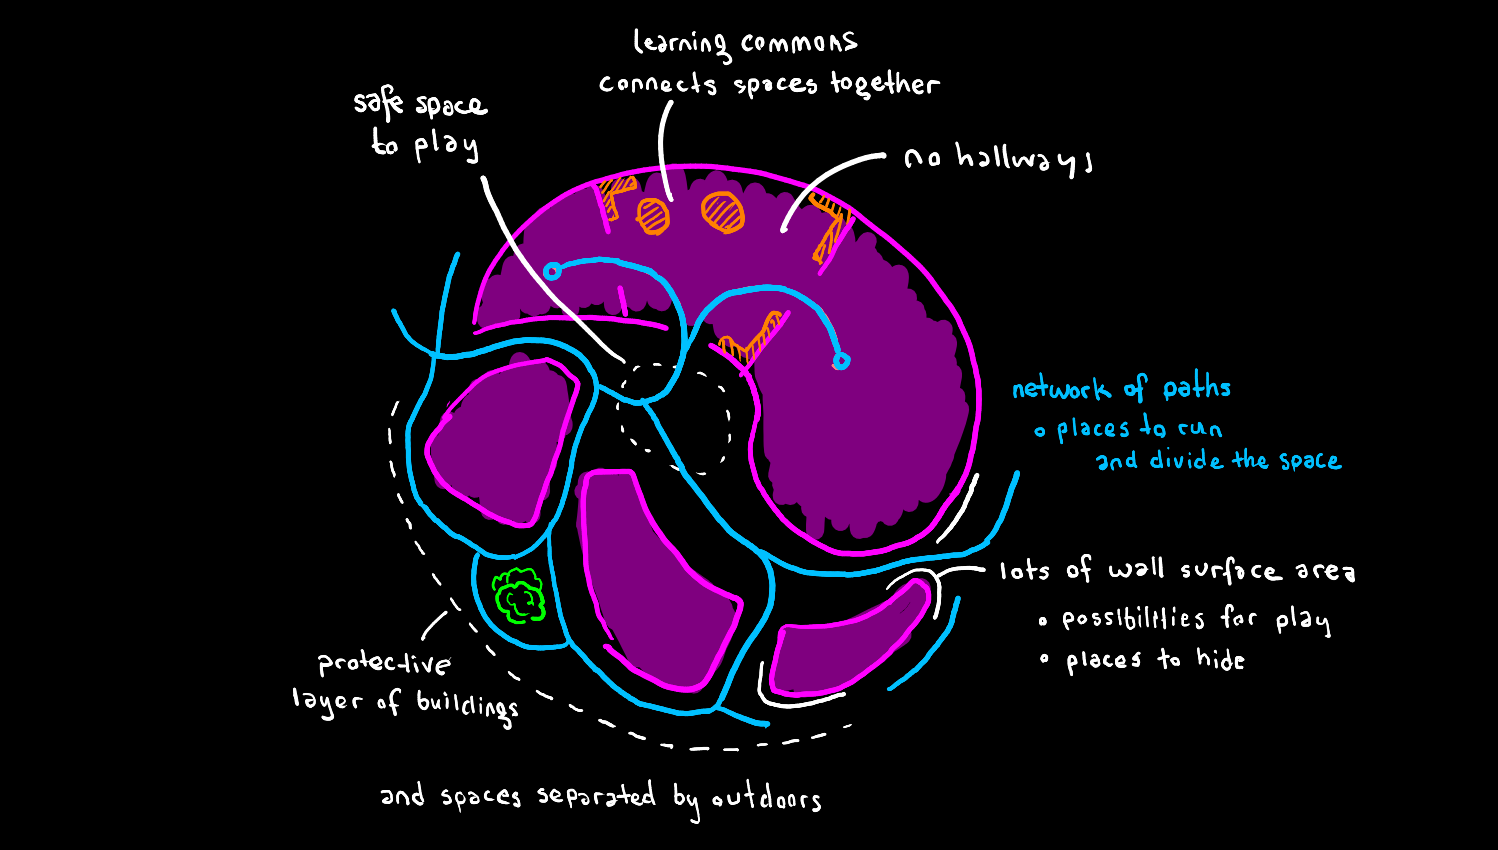 learning commons
connects spaces together
safe space
to play
no hallways
network of paths
places to run
and divide the space
lots of wall surface area
possibilities for play
places to hide
protective
layer of buildings
and spaces separated by outdoors